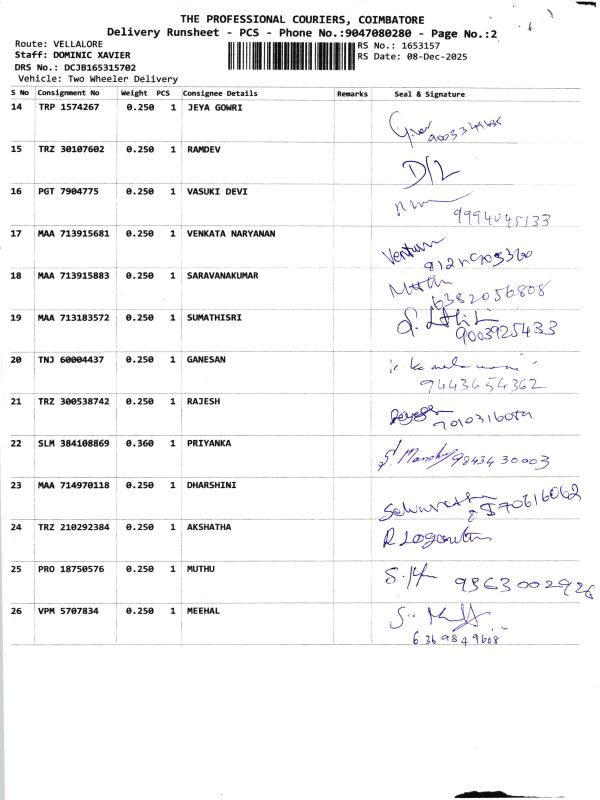 THE PROFESSIONAL COURIERS, COIMBATORE
Delivery Runsheet - PCS - Phone No.:9047080280 - Page No.:2
Route: VELLALORE RS No.: 1653157
Staff: DOMINIC XAVIER RS Date: 08-Dec-2025
DRS No.: DCJB165315702
Vehicle: Two Wheeler Delivery
S No Consignment No Weight PCS Consignee Details Remarks Seal & Signature
14 TRP 1574267 0.250 1 JEYA GOWRI
15 TRZ 30107602 0.250 1 RAMDEV D/L
16 PGT 7904775 0.250 1 VASUKI DEVI
9994045133
17 MAA 713915681 0.250 1 VENKATA NARYANAN
18 MAA 713915883 0.250 1 SARAVANAKUMAR
6382056808
19 MAA 713183572 0.250 1 SUMATHISRI
9003925433
20 TNJ 60004437 0.250 1 GANESAN
9443654362
21 TRZ 300538742 0.250 1 RAJESH
22 SLM 384108869 0.360 1 PRIYANKA 9843430003
23 MAA 714970118 0.250 1 DHARSHINI
24 TRZ 210292384 0.250 1 AKSHATHA
25 PRO 18750576 0.250 1 MUTHU 9363002926
26 VPM 5707834 0.250 1 MEEHAL
6369849608